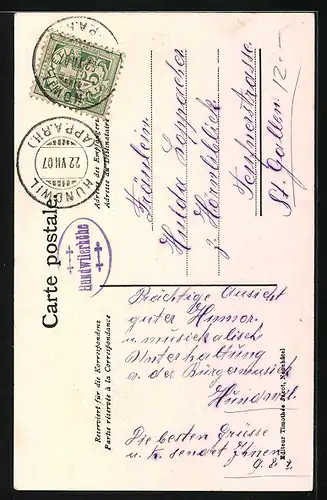 Carte postale
Reserviert für die Korrespondenz
Partie réservée à la Correspondance
Adresse des Empfängers
Adresse du Destinataire
HUNDWIL
(APPARH.)
22 VII 07
Hundwilerhöhe
Fräulein
Hulda
z. Hörnliblick
Teufenerstrasse
St. Gallen
12.-
Prächtige Aussicht
guter Humor
u. musikalisch
Unterhaltung
a. der Bürgermusik
Hundwil.
Die besten Grüsse
u. K. sendet Ihnen
Editeur Timothée Jacot, Neuchâtel